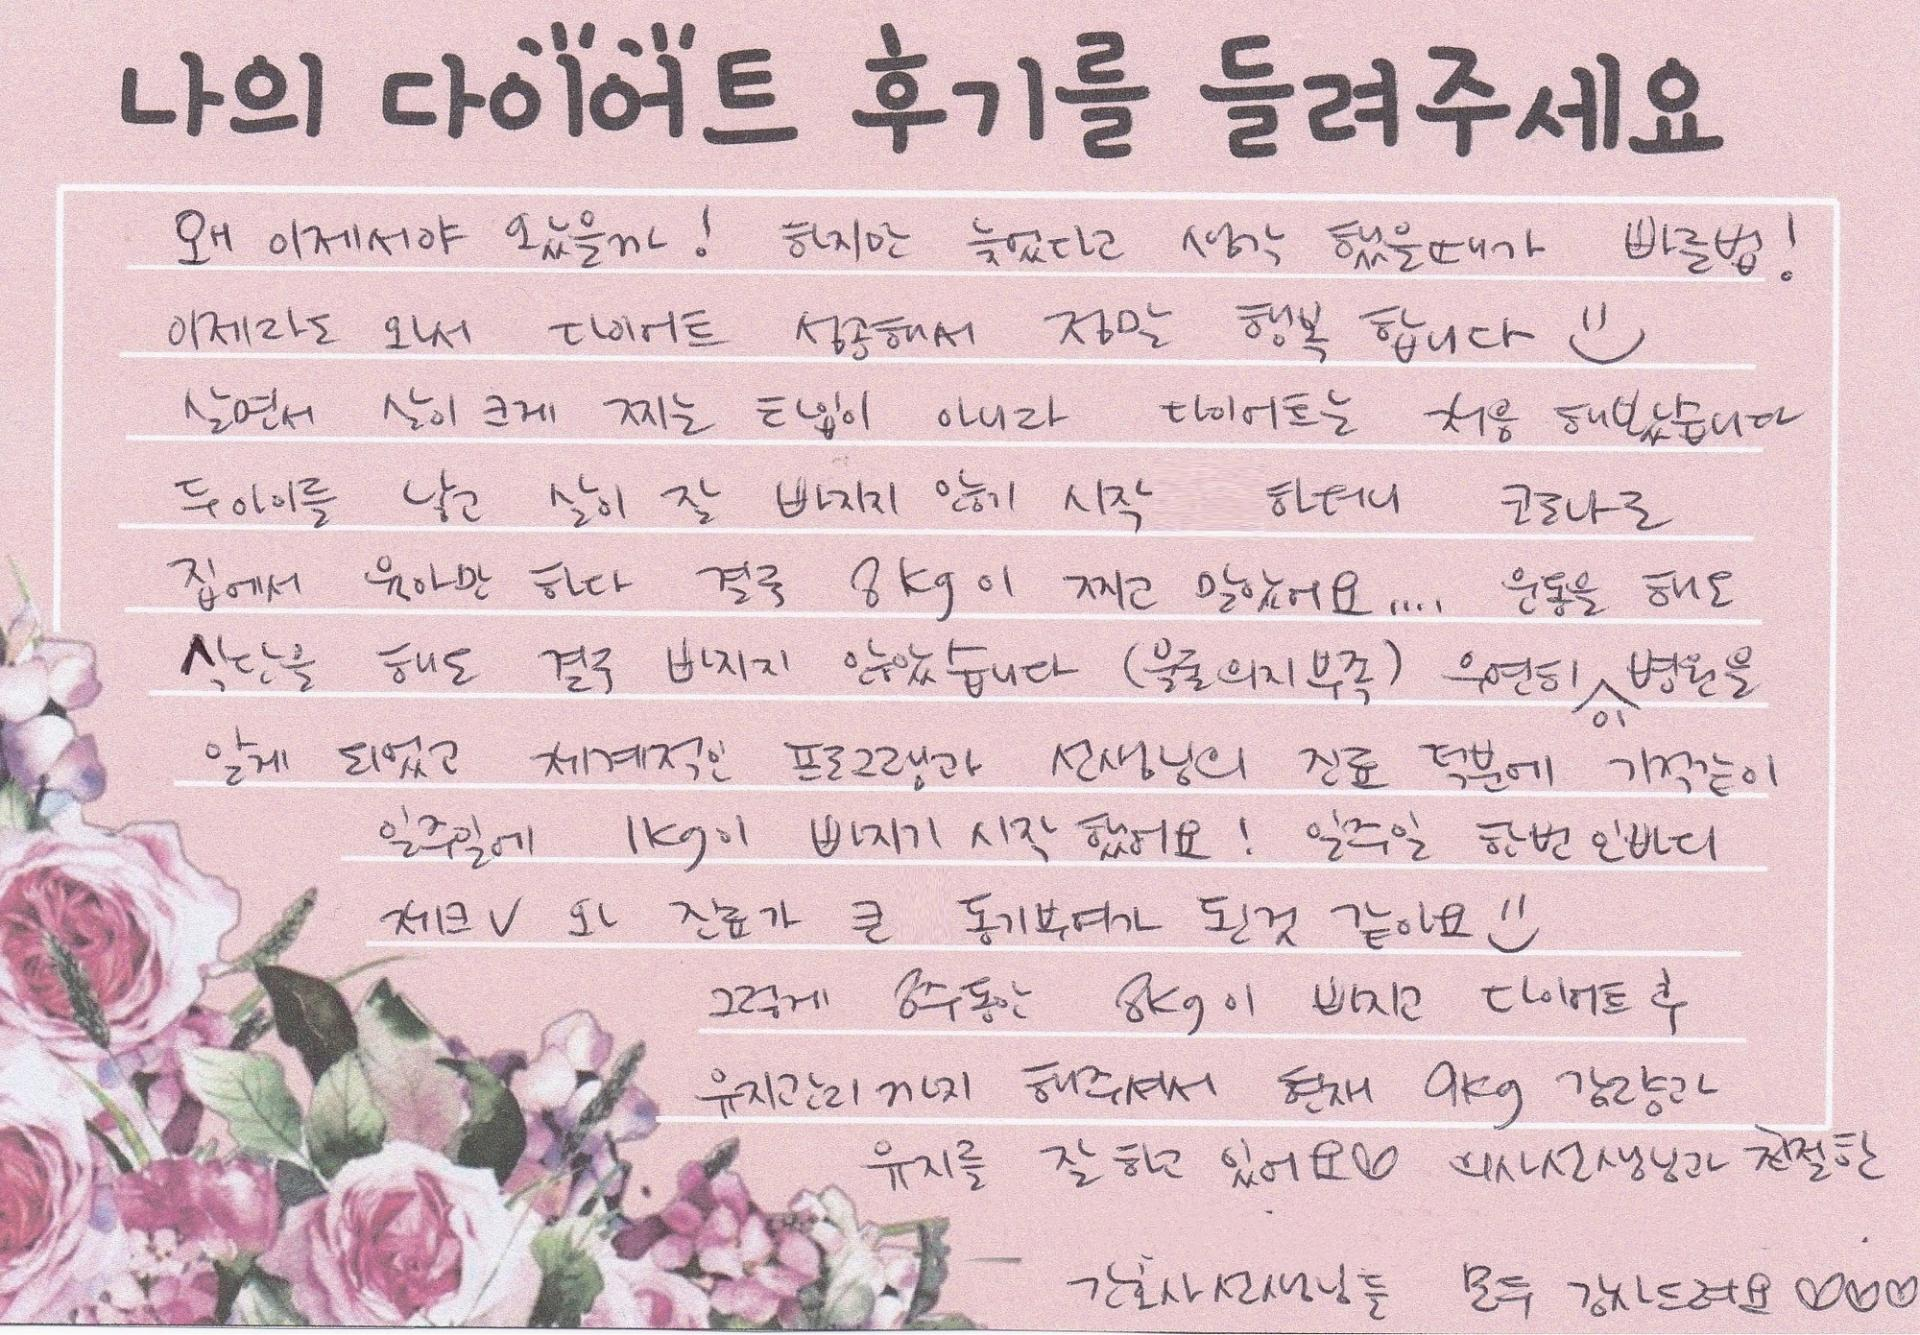 나의 다이어트 후기를 들려주세요
왜 이제서야 왔을까! 하지만 늦었다고 생각 했을때가 빠를법!
이제라도 와서 다이어트 성공해서 정말 행복 합니다
살면서 살이 크게 찌는 타입이 아니라 다이어트는 처음 해보았습니다
두아이를 낳고 살이 잘 빠지지 않기 시작 하더니 코로나로
집에서 육아만 하다 결국 8kg이 찌고 말았어요.... 운동을 해도
식단을 해도 결국 빠지지 않았습니다 (물론의지부족) 우연히 이 병원을
알게 되었고 체계적인 프로그램과 선생님의 진료 덕분에 기적같이
일주일에 1kg이 빠지기 시작 했어요! 일주일 한번 인바디
체크 V 와 진료가 큰 동기부여가 된것 같아요
그렇게 8주동안 8kg이 빠지고 다이어트 후
유지관리까지 해주셔서 현재 9kg 감량과
유지를 잘 하고 있어요♡ 의사선생님과 친절한
간호사선생님들 모두 감사드려요 ♡♡♡